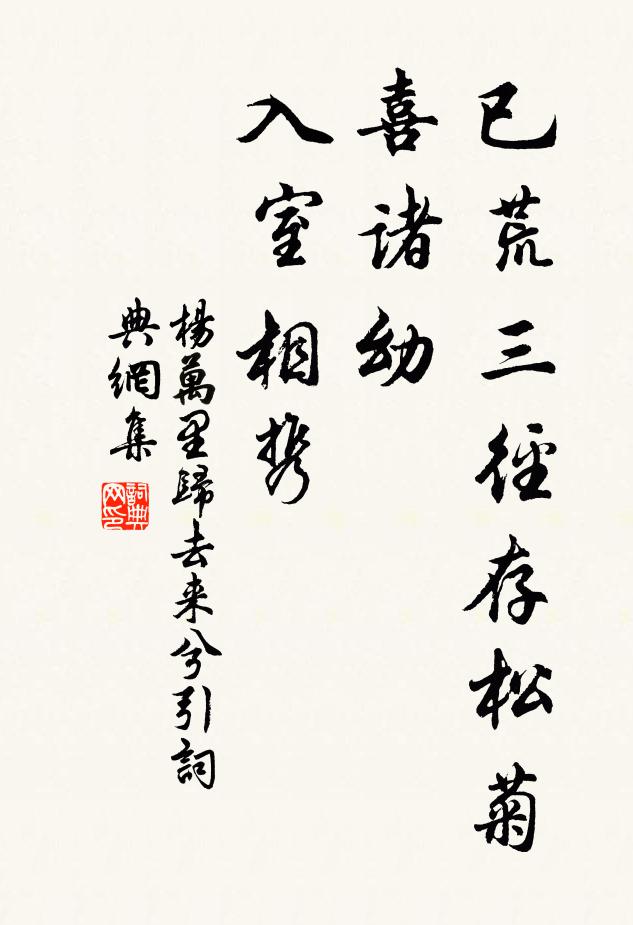 已荒三徑存松菊
喜諸幼
入室相携
楊萬里歸去来兮引詞
典網集
詞典
网印